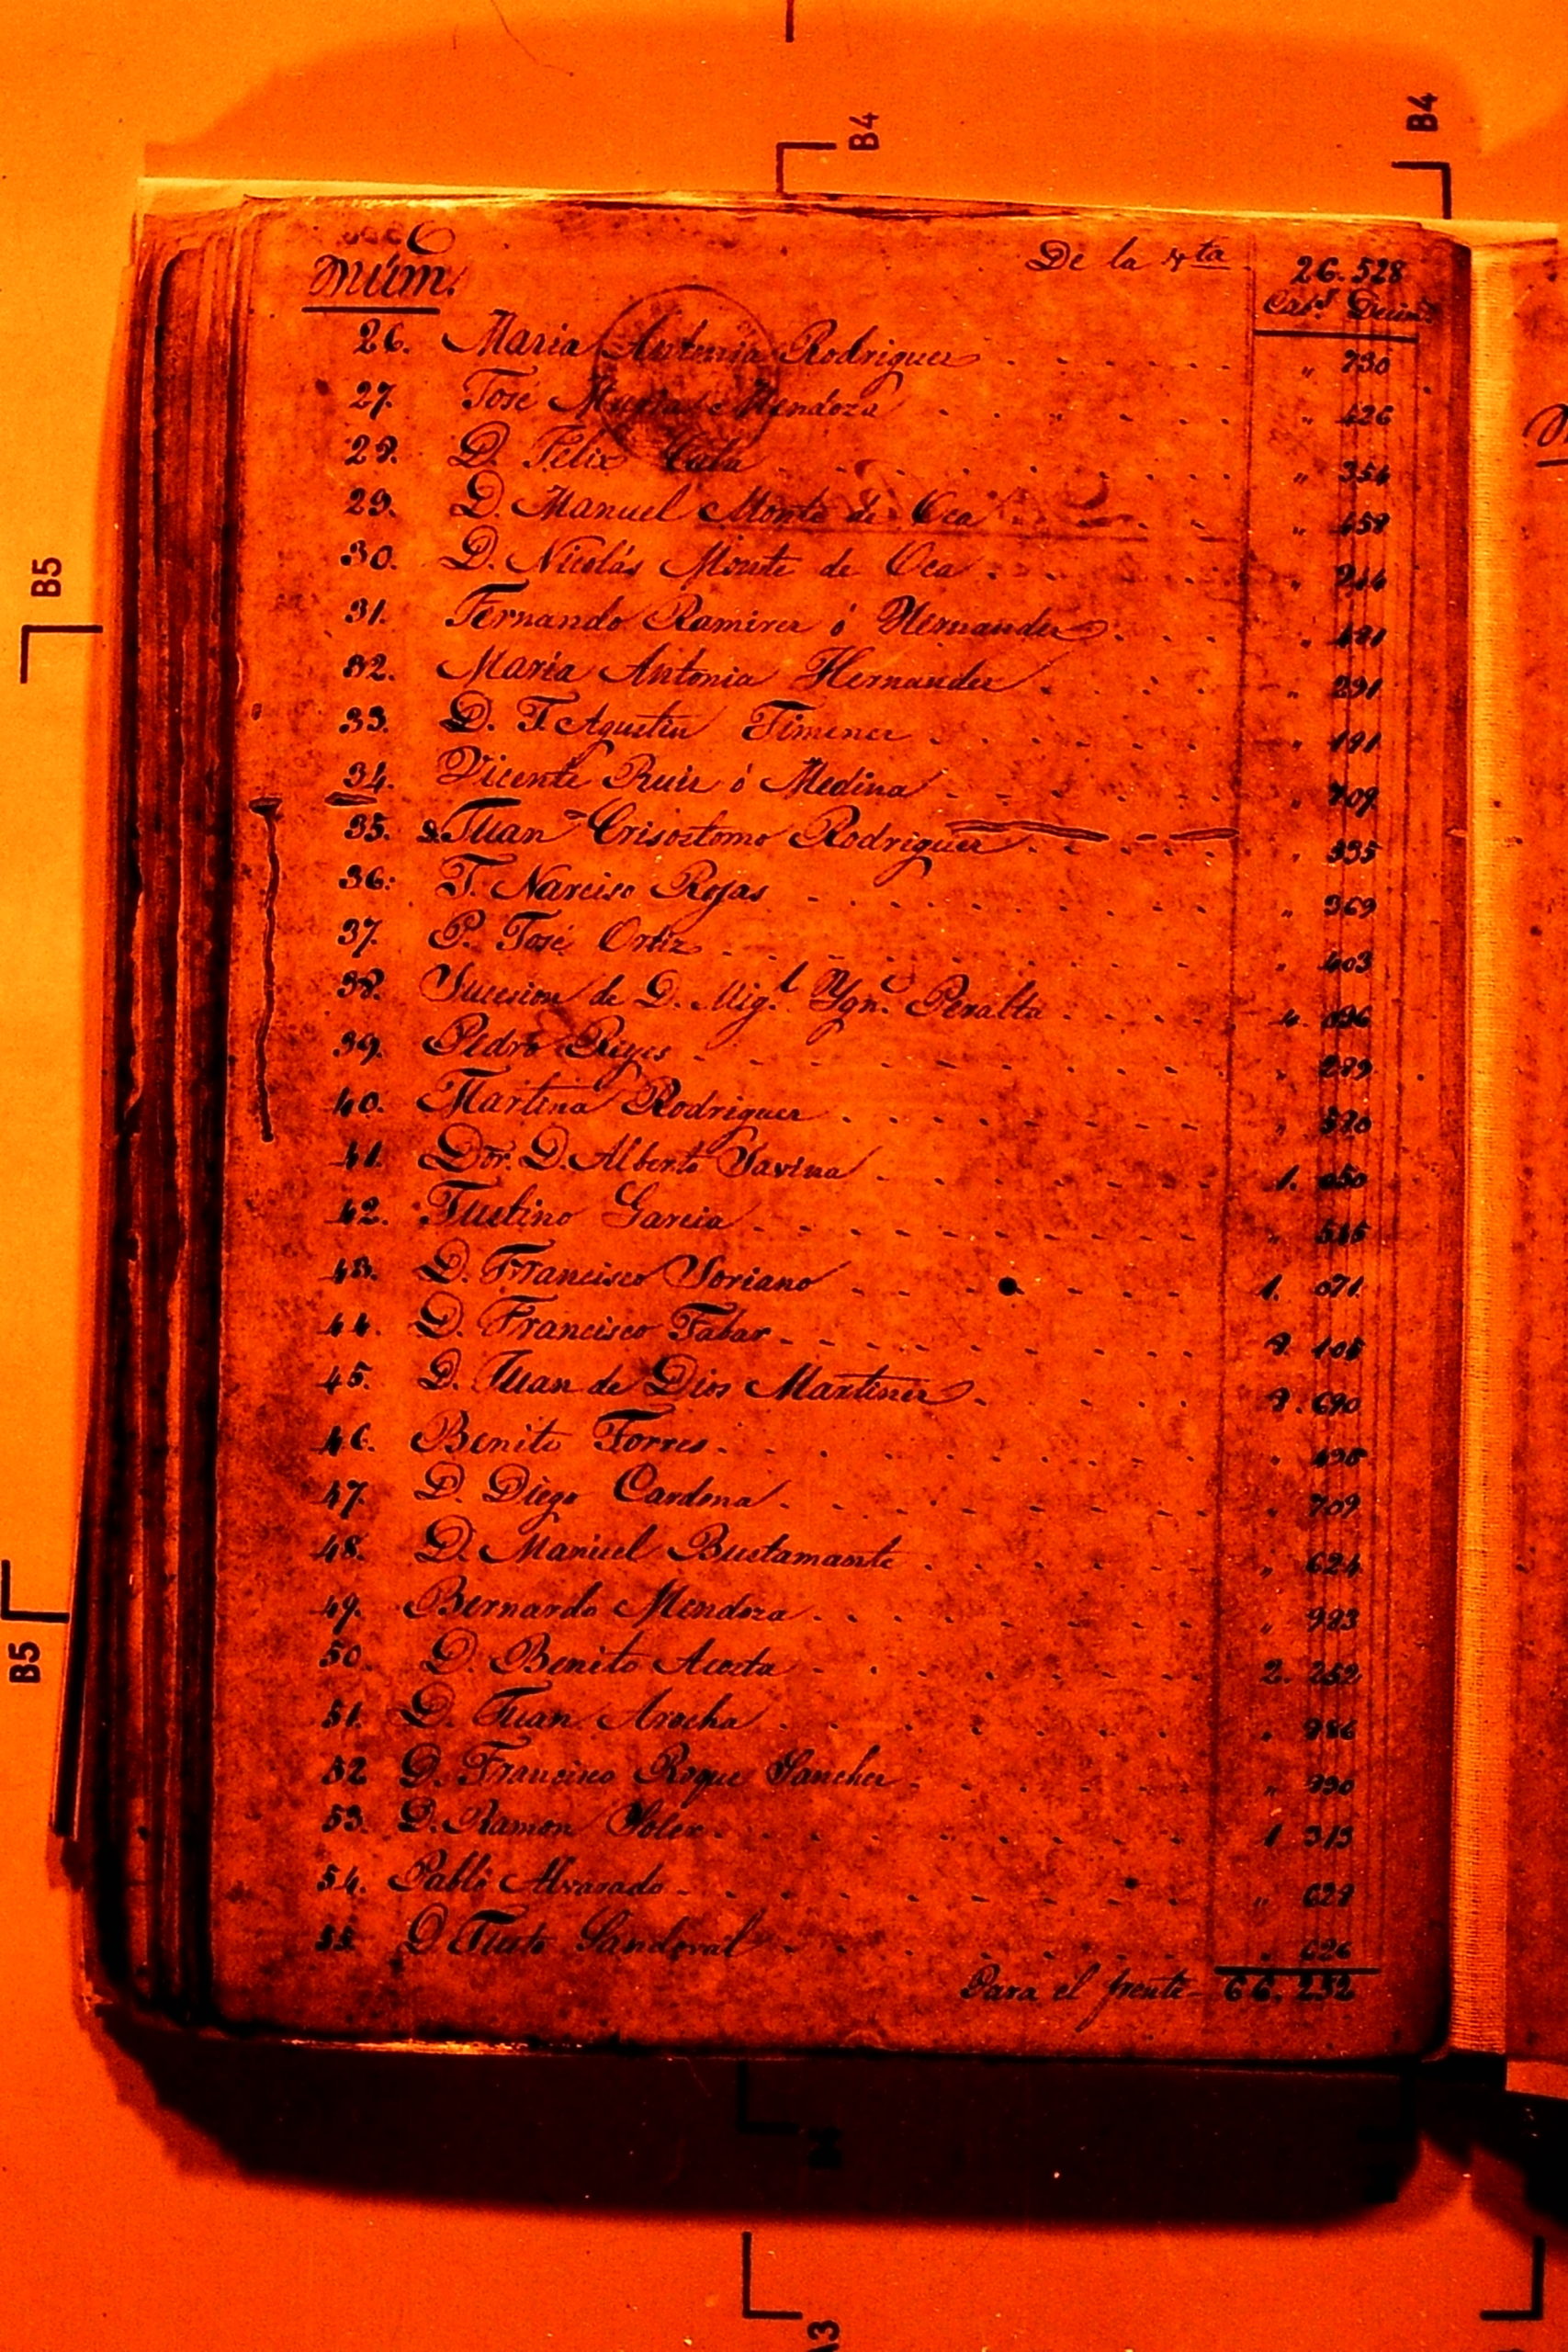 B4 B4
6
Núm. De la 4ta 26.528
Cab.s Decim.
26. Maria Antonia Rodriguez " 730
27. José Mendoza " 426
28. D. Félix " 354
29. D. Manuel Monte de Oca " 458
30. D. Nicolás Monte de Oca "
31. Fernando Ramirez ó Hernandez "
32. María Antonia Hernandez " 291
33. D. J. Agustin Jimenez " 191
34. Vicente Ruiz ó Medina " 709
35. Juan Crisostomo Rodriguez " 335
36. J. Narciso Rojas " 369
37. P. José Ortiz " 403
38. Sucesion de D. Mig.l Ygn.o Peralta
39. Pedro Reyes " 289
40. Martina Rodriguez "
41. Dor. D. Alberto Savina 1. 050
42. Justino Garcia " 515
43. D. Francisco Soriano 1. 071
44. D. Francisco Tabar
45. D. Juan de Dios Martinez 690
46. Benito Torres "
47. D. Diego Cardona " 709
48. D. Manuel Bustamante " 624
49. Bernardo Mendoza " 983
50. D. Benito Acosta 2. 252
51. D. Juan Arocha " 986
52 D. Francisco Roque Sanchez "
53. D. Ramon Soler 1 313
54. Pablo Alvarado "
55. D. Justo Sandoval " 626
Para el frente 66. 232
B5
B5
A3